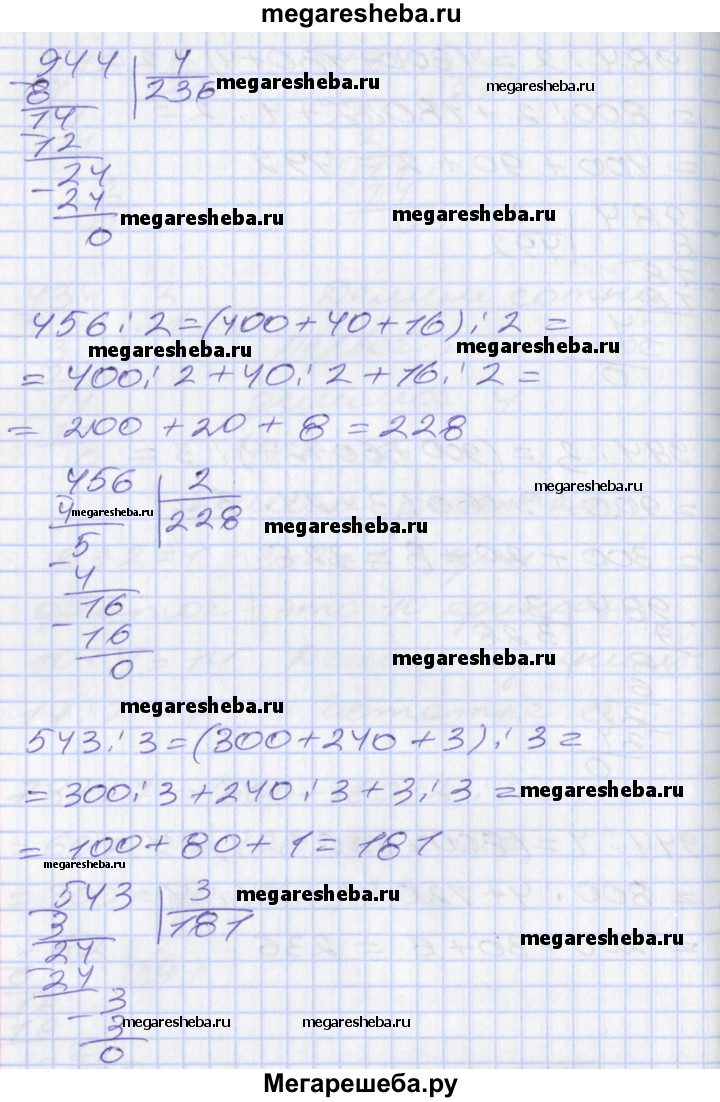 megaresheba.ru
944 4
8 236 megaresheba.ru megaresheba.ru
14
12
- 24
24 megaresheba.ru megaresheba.ru
0
456 : 2 = (400 + 40 + 16) : 2 =
megaresheba.ru megaresheba.ru
= 400 : 2 + 40 : 2 + 16 : 2 =
= 200 + 20 + 8 = 228
456 2 megaresheba.ru
4 megaresheba.ru 228 megaresheba.ru
- 5
4
- 16
16
0 megaresheba.ru
megaresheba.ru
543 : 3 = (300 + 240 + 3) : 3 =
= 300 : 3 + 240 : 3 + 3 : 3 = megaresheba.ru
= 100 + 80 + 1 = 181
megaresheba.ru
543 3 megaresheba.ru
3 181
24 megaresheba.ru
24
- 3
3 megaresheba.ru megaresheba.ru
0
Мегарешеба.ру